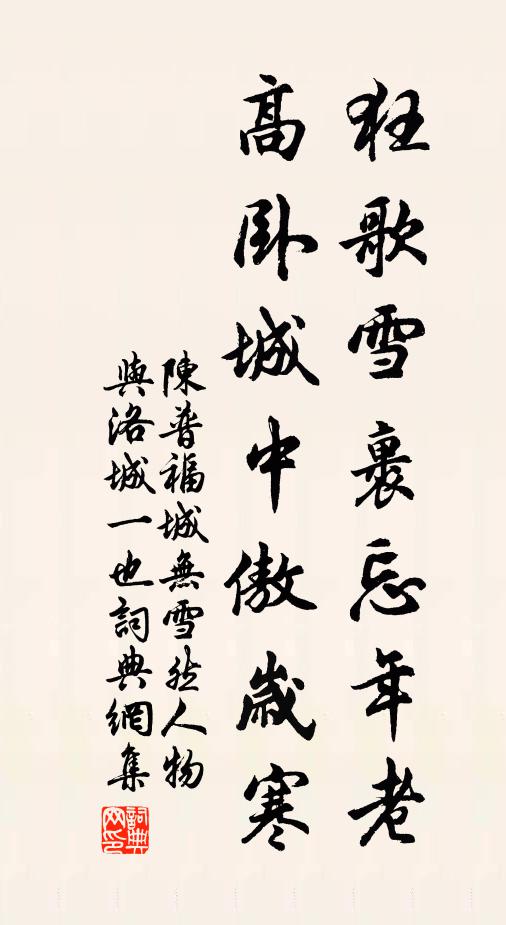 狂歌雪裏忘年老
高臥城中傲歲寒
陳普福城無雪然人物
與洛城一也詞典網集
詞典網印